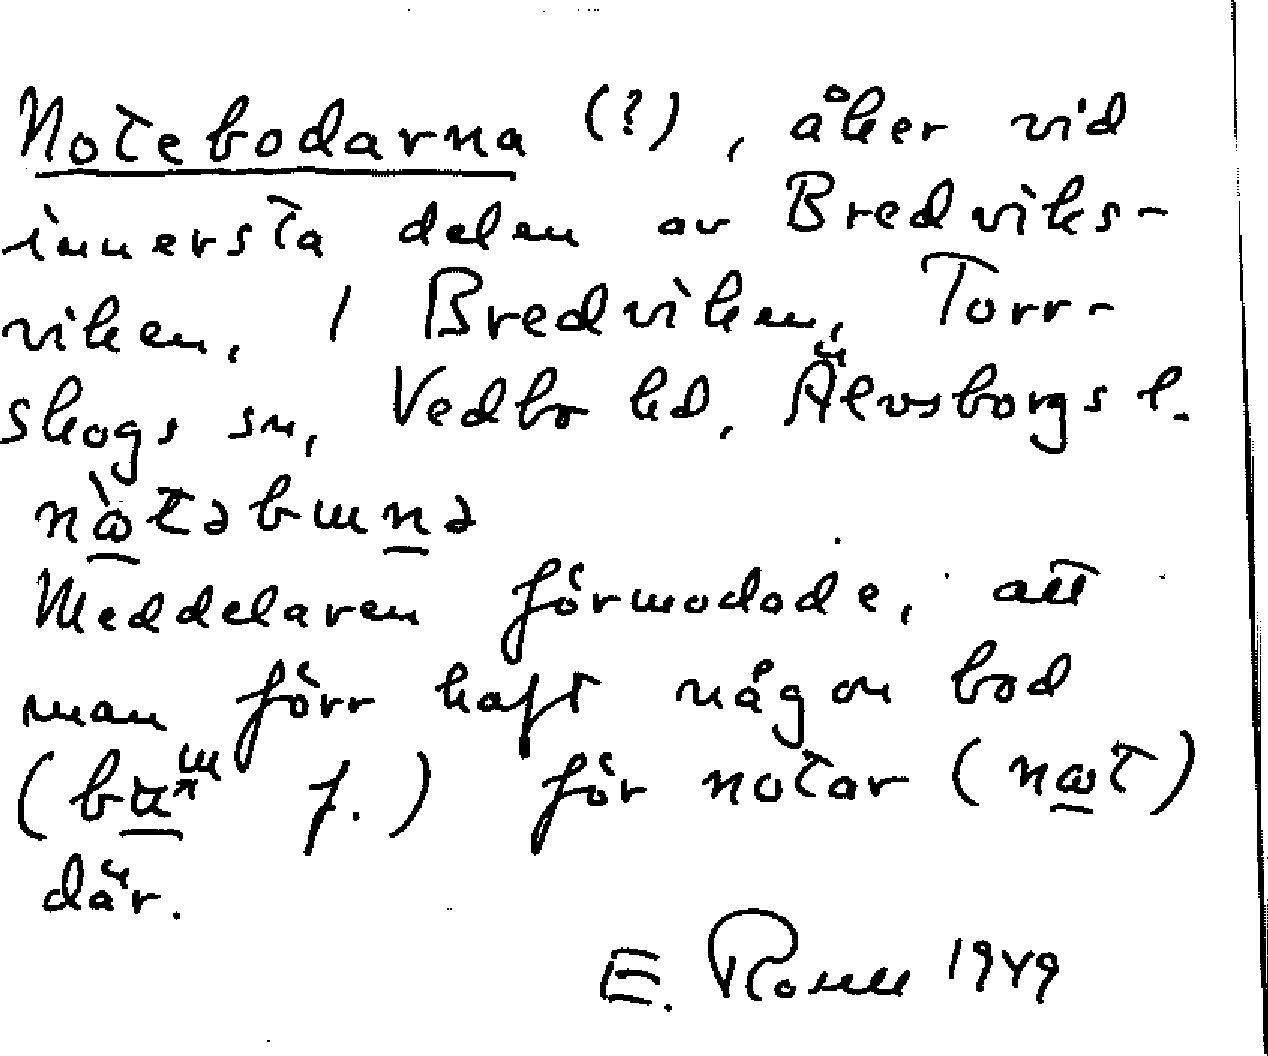 Notebodarna (?), åker vid
innersta delen av Bredviks-
viken, 1 Bredviken, Torr-
skogs sn, Vedbo hd, Älvsborgs l.
nɷ̀təbɯnə
Meddelaren förmodade, att
man förr haft någon bod
( f.) för notar (nɷt)
där.
E. Rosell 1949